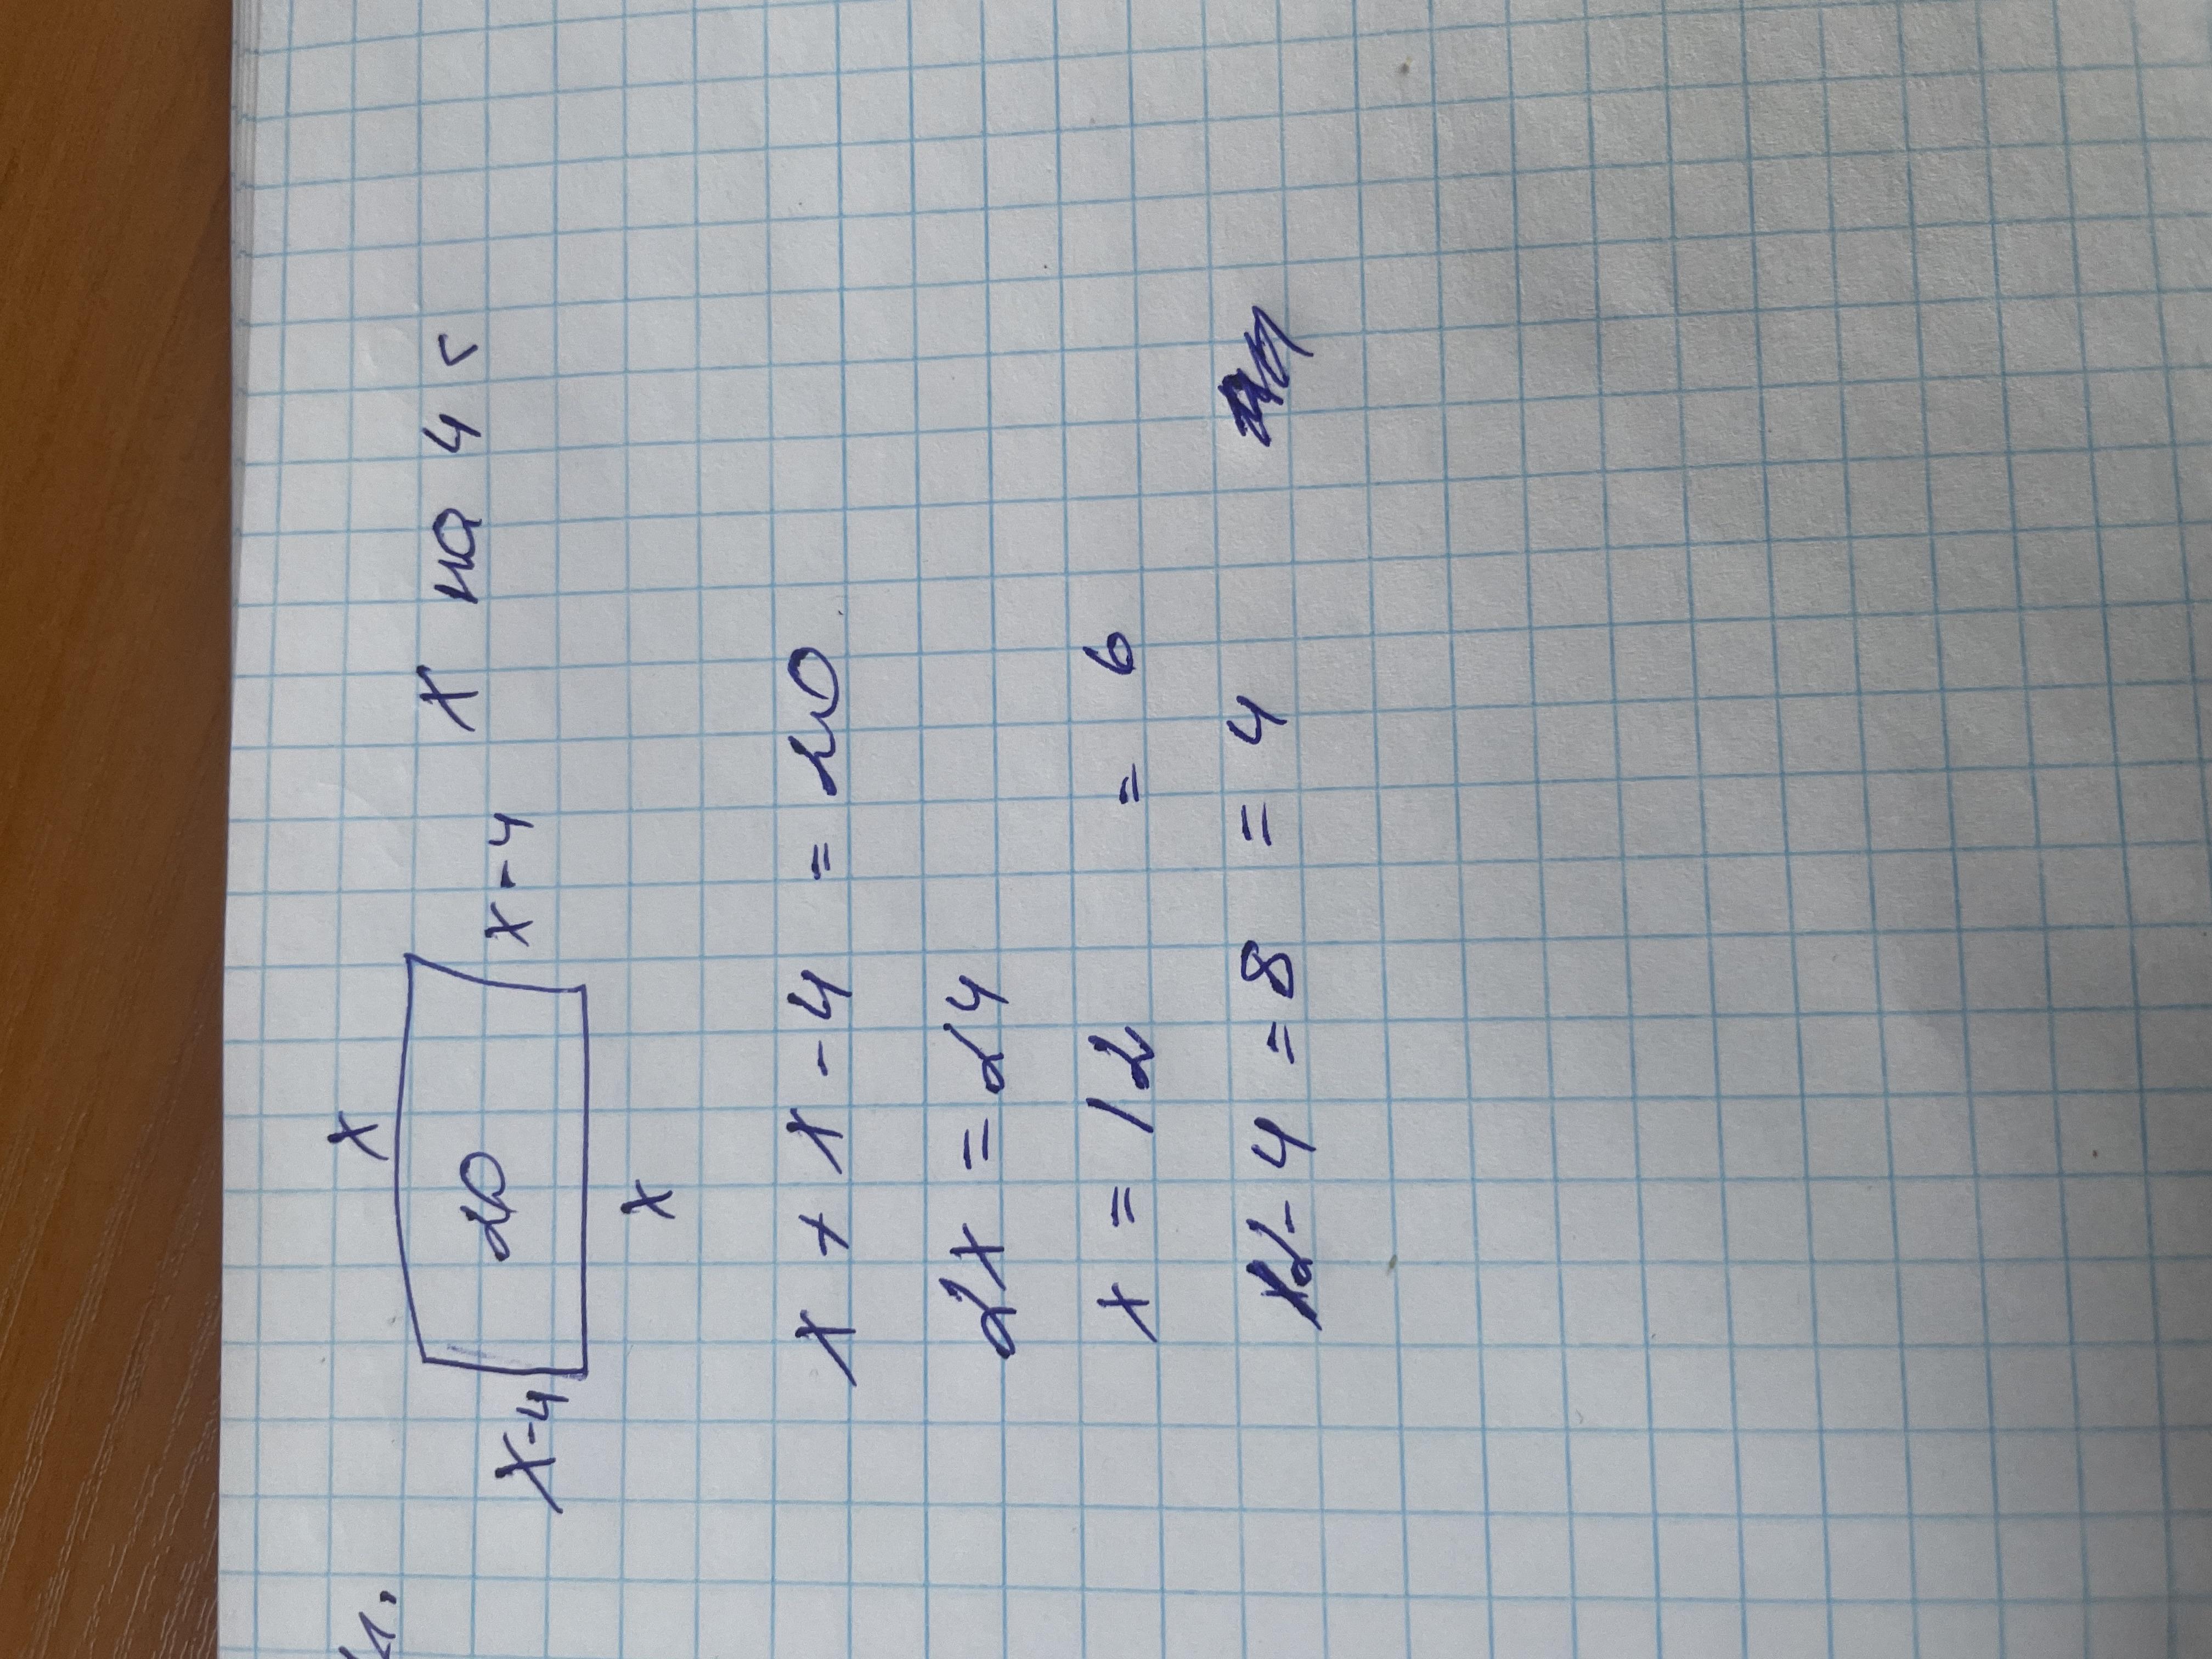 x
x-4 20 x-4 x на 4 <
x
x + x - 4 = 20
2x = 24
x = 12 = 6
12 - 4 = 8 = 4